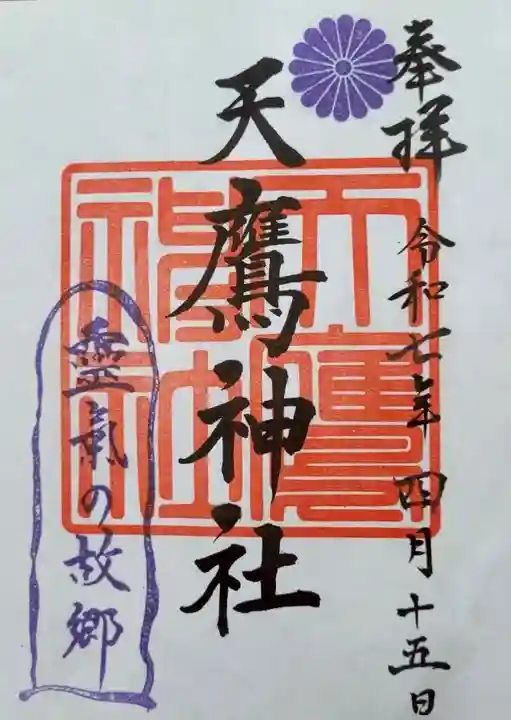 奉拝
令和七年四月十五日
天鷹神社
天鷹神社
霊氣の故郷